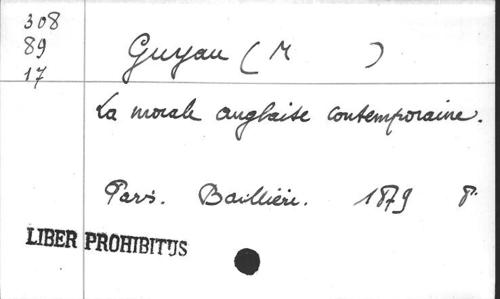 308
89
17
Guyau (M )
La morale anglaise contemporaine.
Paris. Baillière. 1879 8°.
LIBER PROHIBITUS